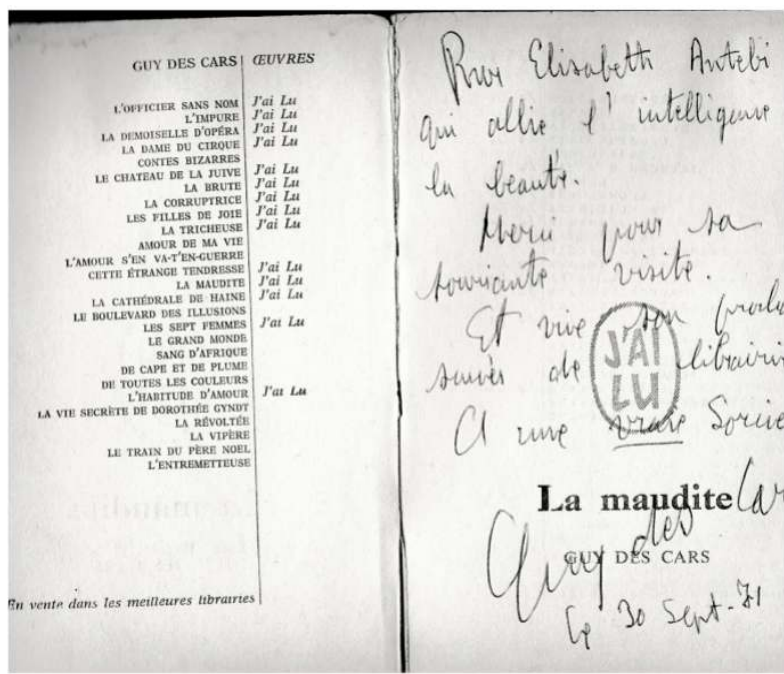 GUY DES CARS ŒUVRES
L'OFFICIER SANS NOM J'ai Lu
L'IMPURE J'ai Lu
LA DEMOISELLE D'OPÉRA J'ai Lu
LA DAME DU CIRQUE J'ai Lu
CONTES BIZARRES
LE CHATEAU DE LA JUIVE J'ai Lu
LA BRUTE J'ai Lu
LA CORRUPTRICE J'ai Lu
LES FILLES DE JOIE J'ai Lu
LA TRICHEUSE J'ai Lu
AMOUR DE MA VIE
L'AMOUR S'EN VA-T'EN-GUERRE
CETTE ÉTRANGE TENDRESSE J'ai Lu
LA MAUDITE J'ai Lu
LA CATHÉDRALE DE HAINE J'ai Lu
LE BOULEVARD DES ILLUSIONS
LES SEPT FEMMES J'ai Lu
LE GRAND MONDE
SANG D'AFRIQUE
DE CAPE ET DE PLUME
DE TOUTES LES COULEURS
L'HABITUDE D'AMOUR J'ai Lu
LA VIE SECRÈTE DE DOROTHÉE GYNDT
LA RÉVOLTÉE
LA VIPÈRE
LE TRAIN DU PÈRE NOEL
L'ENTREMETTEUSE
En vente dans les meilleures librairies
Pour Elisabeth Antebi
qui allie l'intelligence
la beauté.
Merci pour sa
souriante visite.
Et vive son
succès de librairi
A une vraie Sorciè
J'AI
LU
La maudite
Guy des Car
GUY DES CARS
le 30 Sept-71